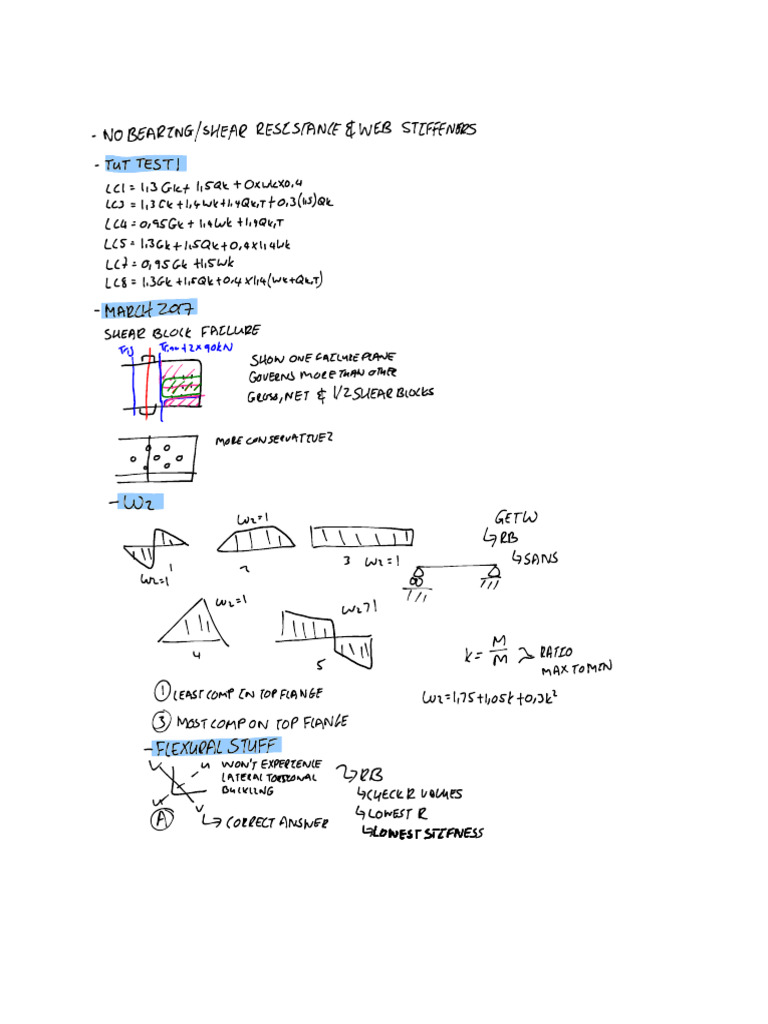 - NO BEARING/SHEAR RESISTANCE & WEB STIFFENERS
- TUT TEST 1
LC1 = 1,3Gk + 1,5Qk + 0xWkx0,4
LC3 = 1,3Gk + 1,4Wk + 1,4Qk,T + 0,3(1,5)Qk
LC4 = 0,95Gk + 1,4Wk + 1,4Qk,T
LC5 = 1,3Gk + 1,5Qk + 0,4x1,4Wk
LC7 = 0,95Gk + 1,5Wk
LC8 = 1,3Gk + 1,5Qk + 0,4x1,4(Wk + Qk,T)
- MARCH 2017
SHEAR BLOCK FAILURE
+ 2x90kN
SHOW ONE FAILURE PLANE
GOVERNS MORE THAN OTHER
GROSS, NET & 1/2 SHEAR BLOCKS
MORE CONSERVATIVE?
- W2
W2=1
1
W2=1
2
3 W2=1
GET W
↳RB
↳SANS
W2=1
4
W2>1
5
k = M/M RATIO
MAX TO MIN
W2=1,75+1,05k+0,3k²
① LEAST COMP IN TOP FLANGE
③ MOST COMP ON TOP FLANGE
- FLEXURAL STUFF
V U
WON'T EXPERIENCE
LATERAL TORSIONAL
BUCKLING
U V
Ⓐ
↳ CORRECT ANSWER
RB
↳CHECK R VALUES
↳LOWEST R
↳LOWEST STIFNESS